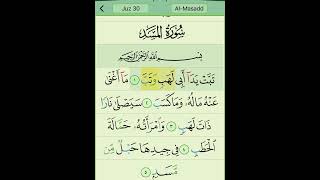 Juz 30
Al-Masadd
سُورَةُ المَسَدِ
بِسْمِ اللَّهِ الرَّحْمَٰنِ الرَّحِيمِ
تَبَّتْ يَدَا أَبِي لَهَبٍ وَتَبَّ ١ مَا أَغْنَىٰ
عَنْهُ مَالُهُ وَمَا كَسَبَ ٢ سَيَصْلَىٰ نَارًا
ذَاتَ لَهَبٍ ٣ وَامْرَأَتُهُ حَمَّالَةَ
الْحَطَبِ ٤ فِي جِيدِهَا حَبْلٌ مِّن
مَّسَدٍ ٥